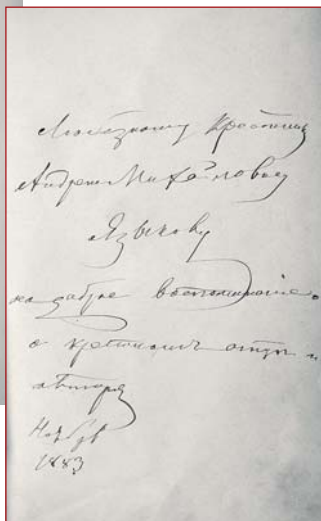 Любезному Крестнику
Андрею Михайловичу
Языкову
на доброе воспоминаніе
о крестномъ отцѣ и
авторѣ
Ноябрь
1883